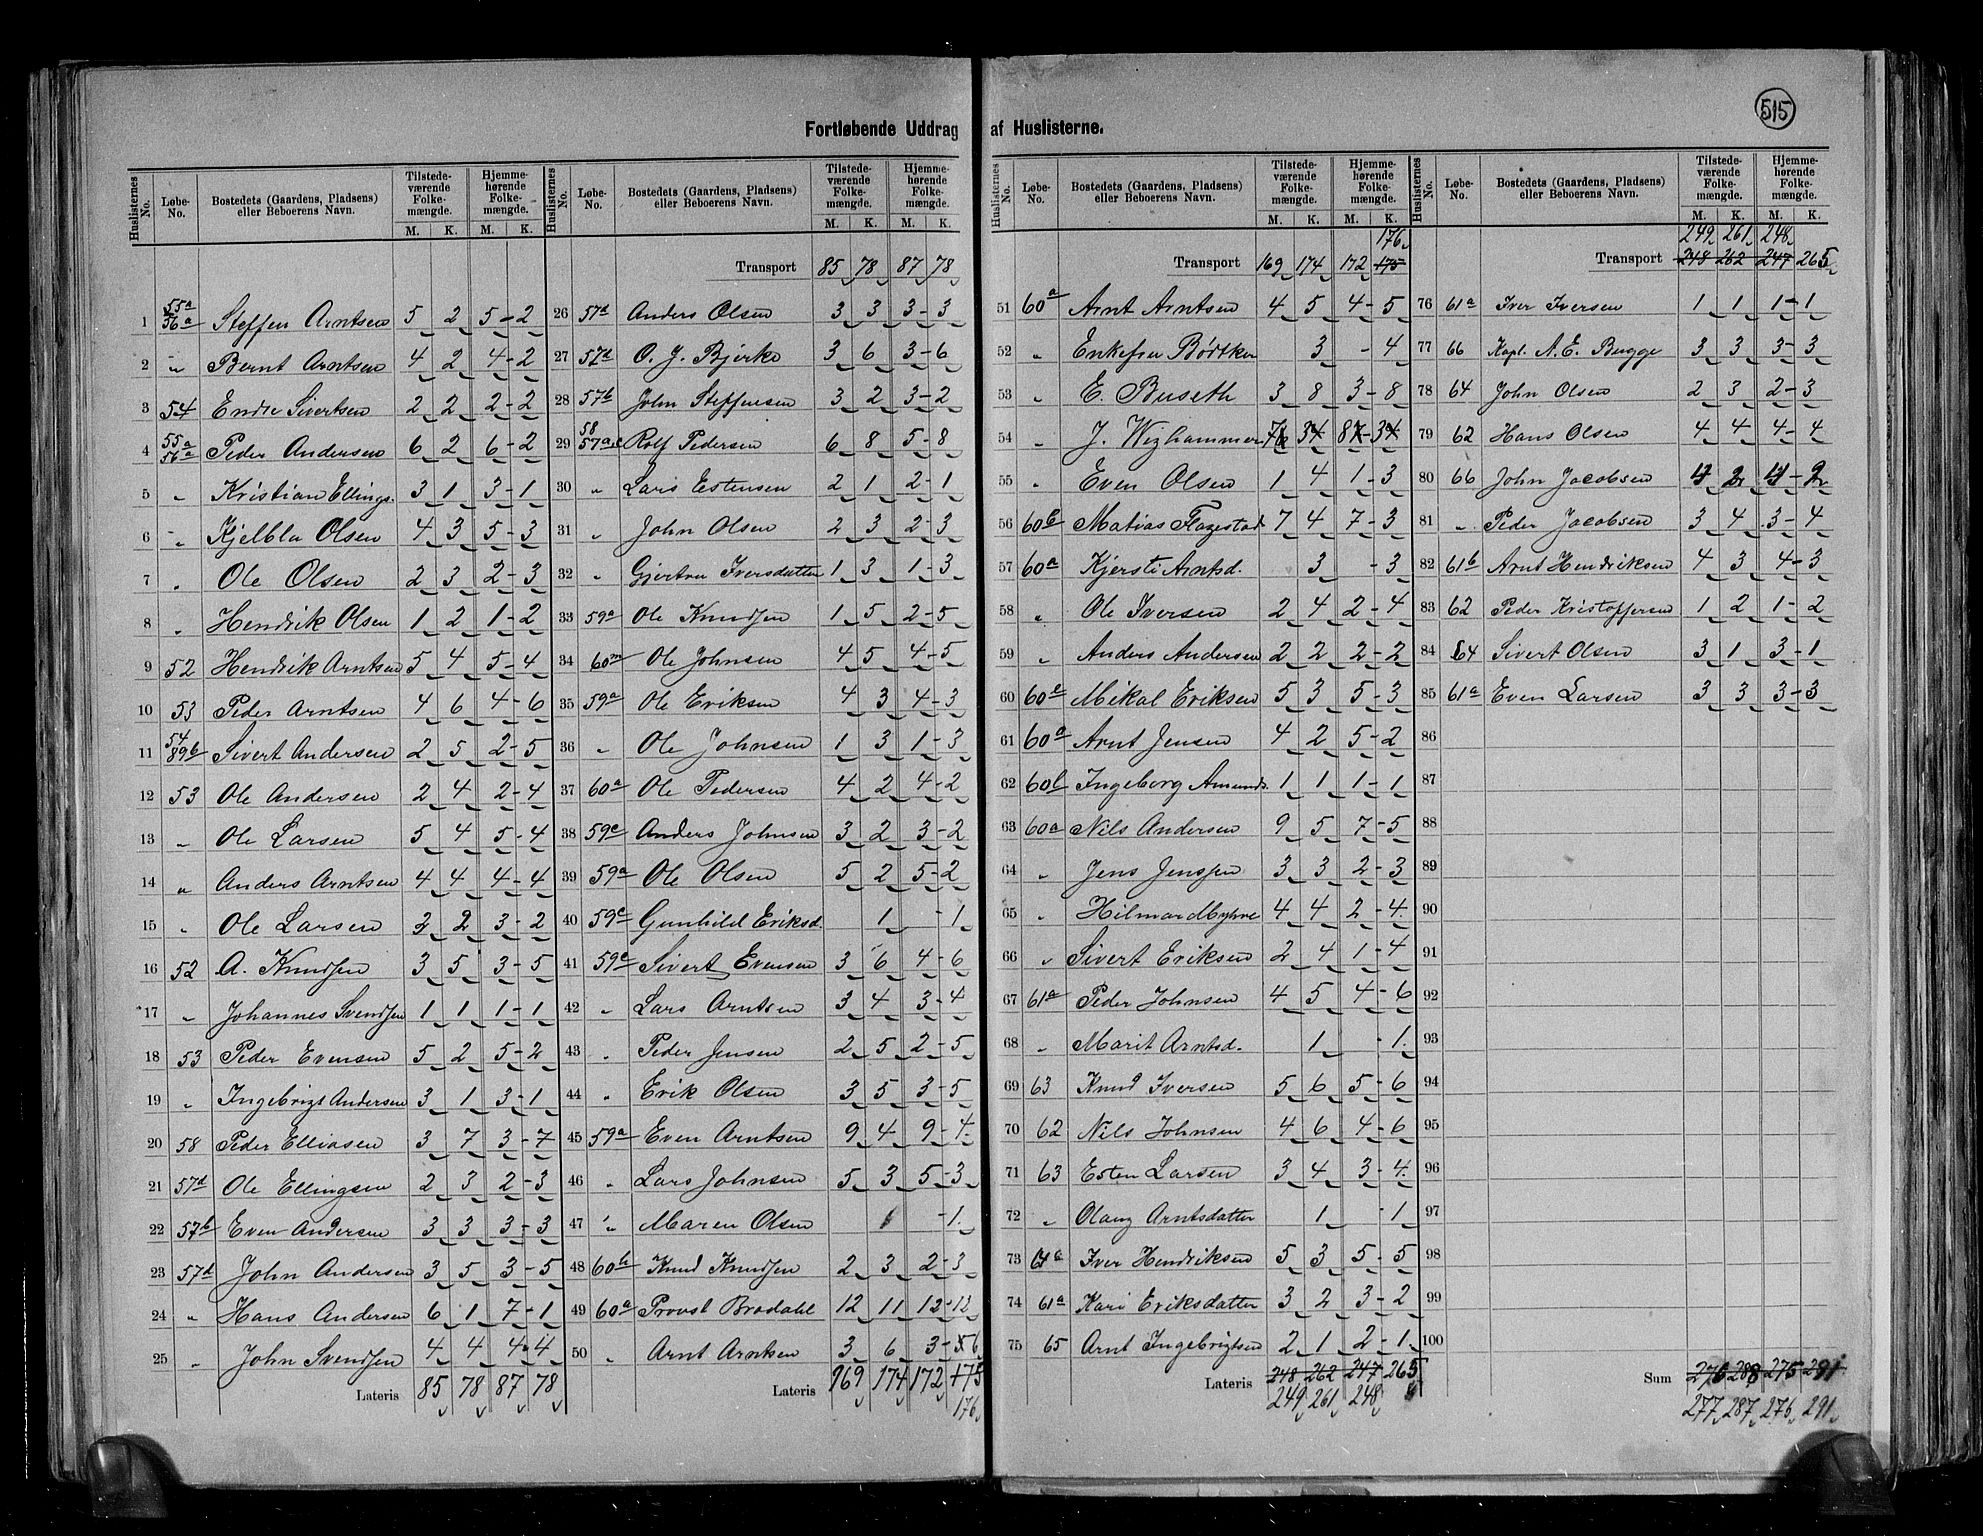 515
Fortløbende Uddrag af Huslisterne.
Huslisternes No. Løbe-No. Bostedets (Gaardens, Pladsens) eller Beboerens Navn. Tilstedeværende Folkemængde. M. K. Hjemmehørende Folkemængde. M. K.
1 55a 56a Steffen Arntsen 5 2 5-2
2 " Bernt Arntsen 4 2 4-2
3 54 Endre Sivertsen 2 2 2-2
4 55a 56a Peder Andersen 6 2 6-2
5 " Kristian Ellings. 3 1 3-1
6 " Kjelbla Olsen 4 3 5-3
7 " Ole Olsen 2 3 2-3
8 " Hendrik Olsen 1 2 1-2
9 52 Hendrik Arntsen 5 4 5-4
10 53 Peder Arntsen 4 6 4-6
11 54 89b Sivert Andersen 2 5 2-5
12 53 Ole Andersen 2 4 2-4
13 " Ole Larsen 5 4 5-4
14 " Anders Arntsen 4 4 4-4
15 " Ole Larsen 2 2 3-2
16 52 A. Knudsen 3 5 3-5
17 " Johannes Svendsen 1 1 1-1
18 53 Peder Evensen 5 2 5-2
19 " Ingebrigt Andersen 3 1 3-1
20 58 Peder Elliasen 3 7 3-7
21 57d Ole Ellingsen 2 3 2-3
22 57b Even Andersen 3 3 3-3
23 57d John Andersen 3 5 3-5
24 " Hans Andersen 6 1 7-1
25 " John Svendsen 4 4 4-4
Lateris 85 78 87 78
Huslisternes No. Løbe-No. Bostedets (Gaardens, Pladsens) eller Beboerens Navn. Tilstedeværende Folkemængde. M. K. Hjemmehørende Folkemængde. M. K.
Transport 85 78 87 78
26 57d Anders Olsen 3 3 3-3
27 57d O. J. Bjerke 3 6 3-6
28 57b John Steffensen 3 2 3-2
29 58 57a Rolf Pedersen 6 8 5-8
30 " Lars Estensen 2 1 2-1
31 " John Olsen 2 3 2-3
32 " Gjertru Iversdatter 1 3 1-3
33 59a Ole Knudsen 1 5 2-5
34 60m Ole Johnsen 4 5 4-5
35 59a Ole Eriksen 4 3 4-3
36 " Ole Johnsen 1 3 1-3
37 60a Ole Pedersen 4 2 4-2
38 59c Anders Johnsen 3 2 3-2
39 59a Ole Olsen 5 2 5-2
40 59c Gunhild Eriksd. 1 -1
41 59c Sivert Evensen 3 6 4-6
42 " Lars Arntsen 3 4 3-4
43 " Peder Jensen 2 5 2-5
44 " Erik Olsen 3 5 3-5
45 59a Even Arntsen 9 4 9-4
46 " Lars Johnsen 5 3 5-3
47 " Maren Olsen 1 -1
48 60h Knud Knudsen 2 3 2-3
49 60a Provst Brodahl 12 11 12-12
50 " Arnt Arntsen 3 6 3-6
Lateris 169 174 172 175
176
Huslisternes No. Løbe-No. Bostedets (Gaardens, Pladsens) eller Beboerens Navn. Tilstedeværende Folkemængde. M. K. Hjemmehørende Folkemængde. M. K.
176
Transport 169 174 172 175
51 60a Arnt Arntsen 4 5 4-5
52 " Enkefru Bødtker 3 -4
53 " E. Buseth 3 8 3-8
54 " J. Wizhammer
55 " Even Olsen 1 4 1-3
56 60b Matias Flagestad 7 4 7-3
57 60a Kjersti Arntsd. 3 -3
58 " Ole Iversen 2 4 2-4
59 " Anders Andersen 2 2 2-2
60 60e Mikal Eriksen 5 3 5-3
61 60a Arnt Jensen 4 2 5-2
62 60l Ingeborg Amunds. 1 1 1-1
63 60a Nils Andersen 9 5 7-5
64 " Jens Jenssen 3 3 2-3
65 " Hilmar Myhre 4 4 2-4
66 " Sivert Eriksen 2 4 1-4
67 61a Peder Johnsen 4 5 4-6
68 " Marit Arntsd. 1 -1
69 63 Knud Iversen 5 6 5-6
70 62 Nils Johnsen 4 6 4-6
71 63 Esten Larsen 3 4 3-4
72 " Olaug Arntsdatter 1 -1
73 61a Iver Hendriksen 5 3 5-5
74 61a Kari Eriksdatter 3 2 3-2
75 65 Arnt Ingebrigtsen 2 1 2-1
Lateris 248 262 247 265
249 261 248
Huslisternes No. Løbe-No. Bostedets (Gaardens, Pladsens) eller Beboerens Navn. Tilstedeværende Folkemængde. M. K. Hjemmehørende Folkemængde. M. K.
249 261 248
Transport 248 262 247 265
76 61a Iver Iversen 1 1 1-1
77 66 Kapl. A. E. Bugge 3 3 3-3
78 64 John Olsen 2 3 2-3
79 62 Hans Olsen 4 4 4-4
80 66 John Jacobsen
81 " Peder Jacobsen 3 4 3-4
82 61b Arnt Hendriksen 4 3 4-3
83 62 Peder Kristoffersen 1 2 1-2
84 64 Sivert Olsen 3 1 3-1
85 61a Even Larsen 3 3 3-3
86
87
88
89
90
91
92
93
94
95
96
97
98
99
100
Sum 276 288 275 291
277 287 276 291